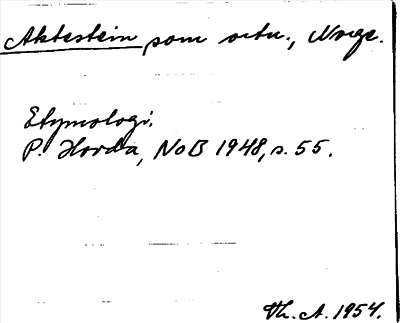 Aktestein som ortn., Norge.
Etymologi.
P. Hovda, NoB 1948, s. 55.
Th. A. 1954.